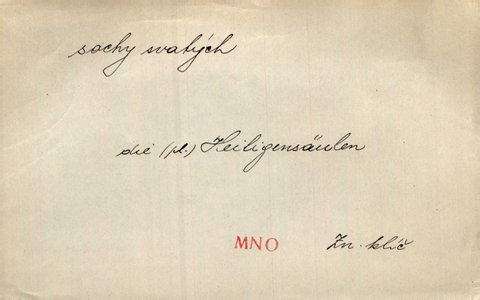 sochy svatých
die (pl.) Heiligensäulen
MNO Zn. klíč